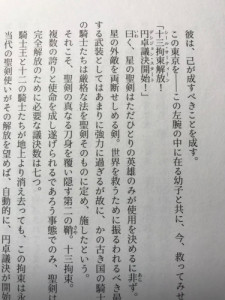 彼は、己が成すべきことを成す。
この東京を――この左腕の中に在る幼子と共に、今、救ってみせ
「十三拘束解放！
円卓議決開始！」
曰く、星の聖剣はただひとりの英雄のみが使用を決めるに非ず。
星の外敵を両断せしめる剣。世界を救うために振るわれるべき最
する武装としてはあまりに強力に過ぎるが故に、かの古き国の騎士
の騎士たちは厳格な法を聖剣そのものに定め、施したという。
それこそ、聖剣の真なる刀身を覆い隠す第二の鞘、十三拘束。
複数の誇りと使命を成し遂げられるであろう事態でのみ、聖剣は
完全解放のために必要な議決数は七つ。
騎士王と十二の騎士たちが地上より消え去っても、この拘束は永
当代の聖剣使いがその解放を望めば、自動的に、円卓議決が開始